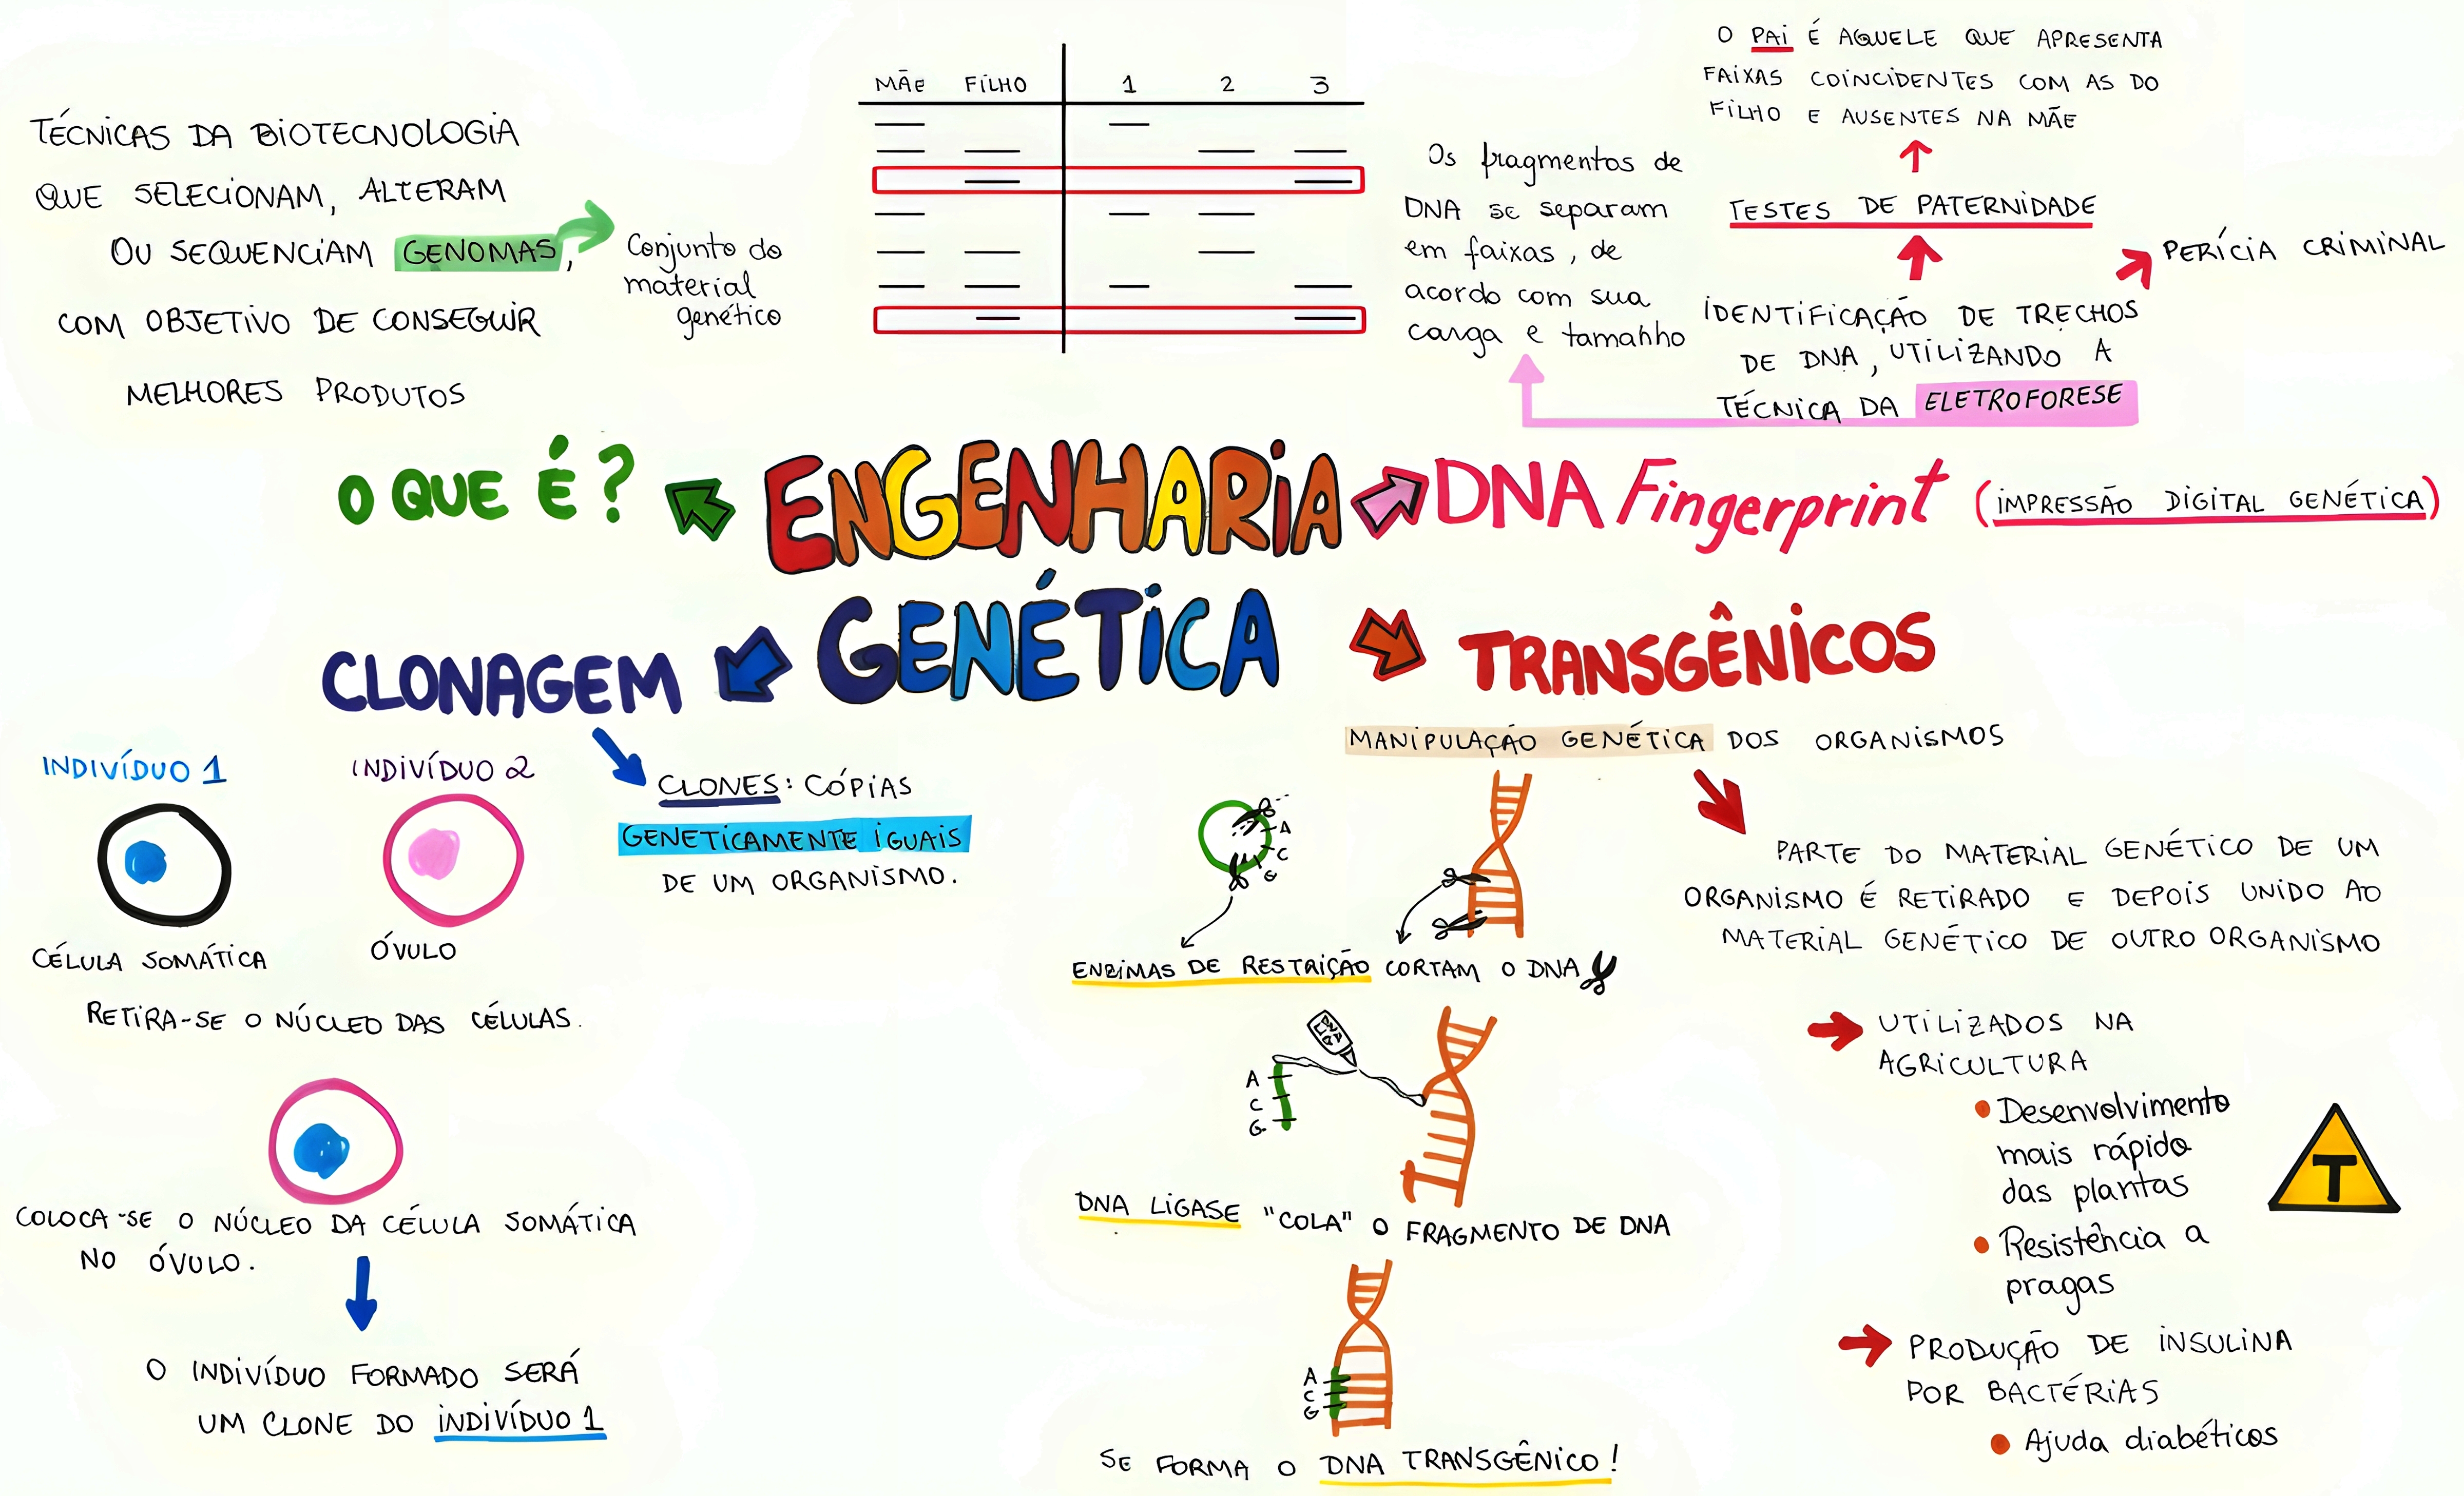 TÉCNICAS DA BIOTECNOLOGIA
QUE SELECIONAM, ALTERAM
OU SEQUENCIAM GENOMAS,
COM OBJETIVO DE CONSEGUIR
MELHORES PRODUTOS
Conjunto do
material
genético
O QUE É?
MÃE FILHO 1 2 3
Os fragmentos de
DNA se separam
em faixas, de
acordo com sua
carga e tamanho
O PAI É AQUELE QUE APRESENTA
FAIXAS COINCIDENTES COM AS DO
FILHO E AUSENTES NA MÃE
TESTES DE PATERNIDADE
PERÍCIA CRIMINAL
IDENTIFICAÇÃO DE TRECHOS
DE DNA, UTILIZANDO A
TÉCNICA DA ELETROFORESE
ENGENHARIA
GENÉTICA
DNA Fingerprint (IMPRESSÃO DIGITAL GENÉTICA)
CLONAGEM
INDIVÍDUO 1
INDIVÍDUO 2
CLONES: CÓPIAS
GENETICAMENTE IGUAIS
DE UM ORGANISMO.
CÉLULA SOMÁTICA
ÓVULO
RETIRA-SE O NÚCLEO DAS CÉLULAS.
COLOCA-SE O NÚCLEO DA CÉLULA SOMÁTICA
NO ÓVULO.
O INDIVÍDUO FORMADO SERÁ
UM CLONE DO INDIVÍDUO 1
TRANSGÊNICOS
MANIPULAÇÃO GENÉTICA DOS ORGANISMOS
A
C
G
ENZIMAS DE RESTRIÇÃO CORTAM O DNA
DNA
LIG
A
C
G
DNA LIGASE "COLA" O FRAGMENTO DE DNA
A
C
G
SE FORMA O DNA TRANSGÊNICO!
PARTE DO MATERIAL GENÉTICO DE UM
ORGANISMO É RETIRADO E DEPOIS UNIDO AO
MATERIAL GENÉTICO DE OUTRO ORGANISMO
UTILIZADOS NA
AGRICULTURA
Desenvolvimento
mais rápido
das plantas
Resistência a
pragas
T
PRODUÇÃO DE INSULINA
POR BACTÉRIAS
Ajuda diabéticos